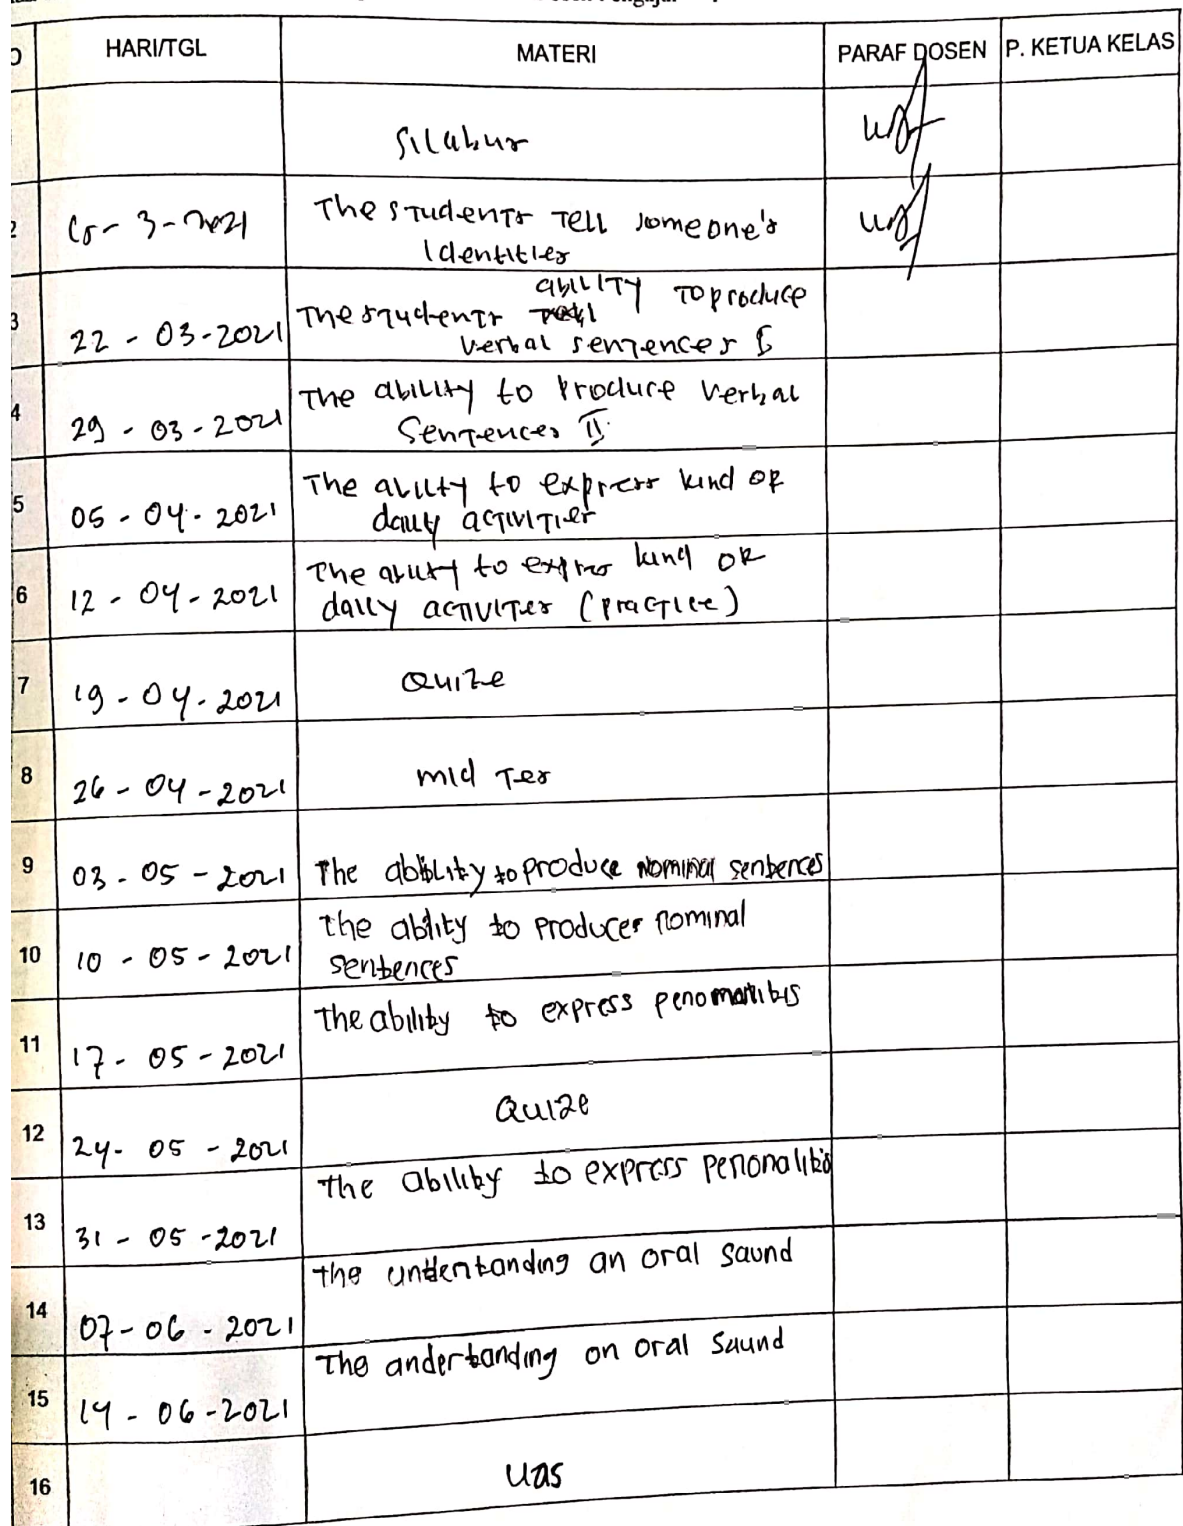 HARI/TGL MATERI PARAF DOSEN P. KETUA KELAS
Silabus
2 15-3-2021 The students Tell someone's
Identities
3 22-03-2021 The students ability To produce
verbal sentences I
4 29-03-2021 The ability to produce verbal
Sentences II
5 05-04-2021 The ability to express kind of
daily activities
6 12-04-2021 The ability to express kind of
daily activities (practice)
7 19-04-2021 Quize
8 26-04-2021 mid Tes
9 03-05-2021 The ability to produce nominal sentences
10 10-05-2021 the ability to producer nominal
sentences
11 17-05-2021 The ability to express
12 24-05-2021 Quize
13 31-05-2021 the ability to express
14 07-06-2021 the understanding an oral saund
15 14-06-2021 The anderstanding on oral saund
16 uas